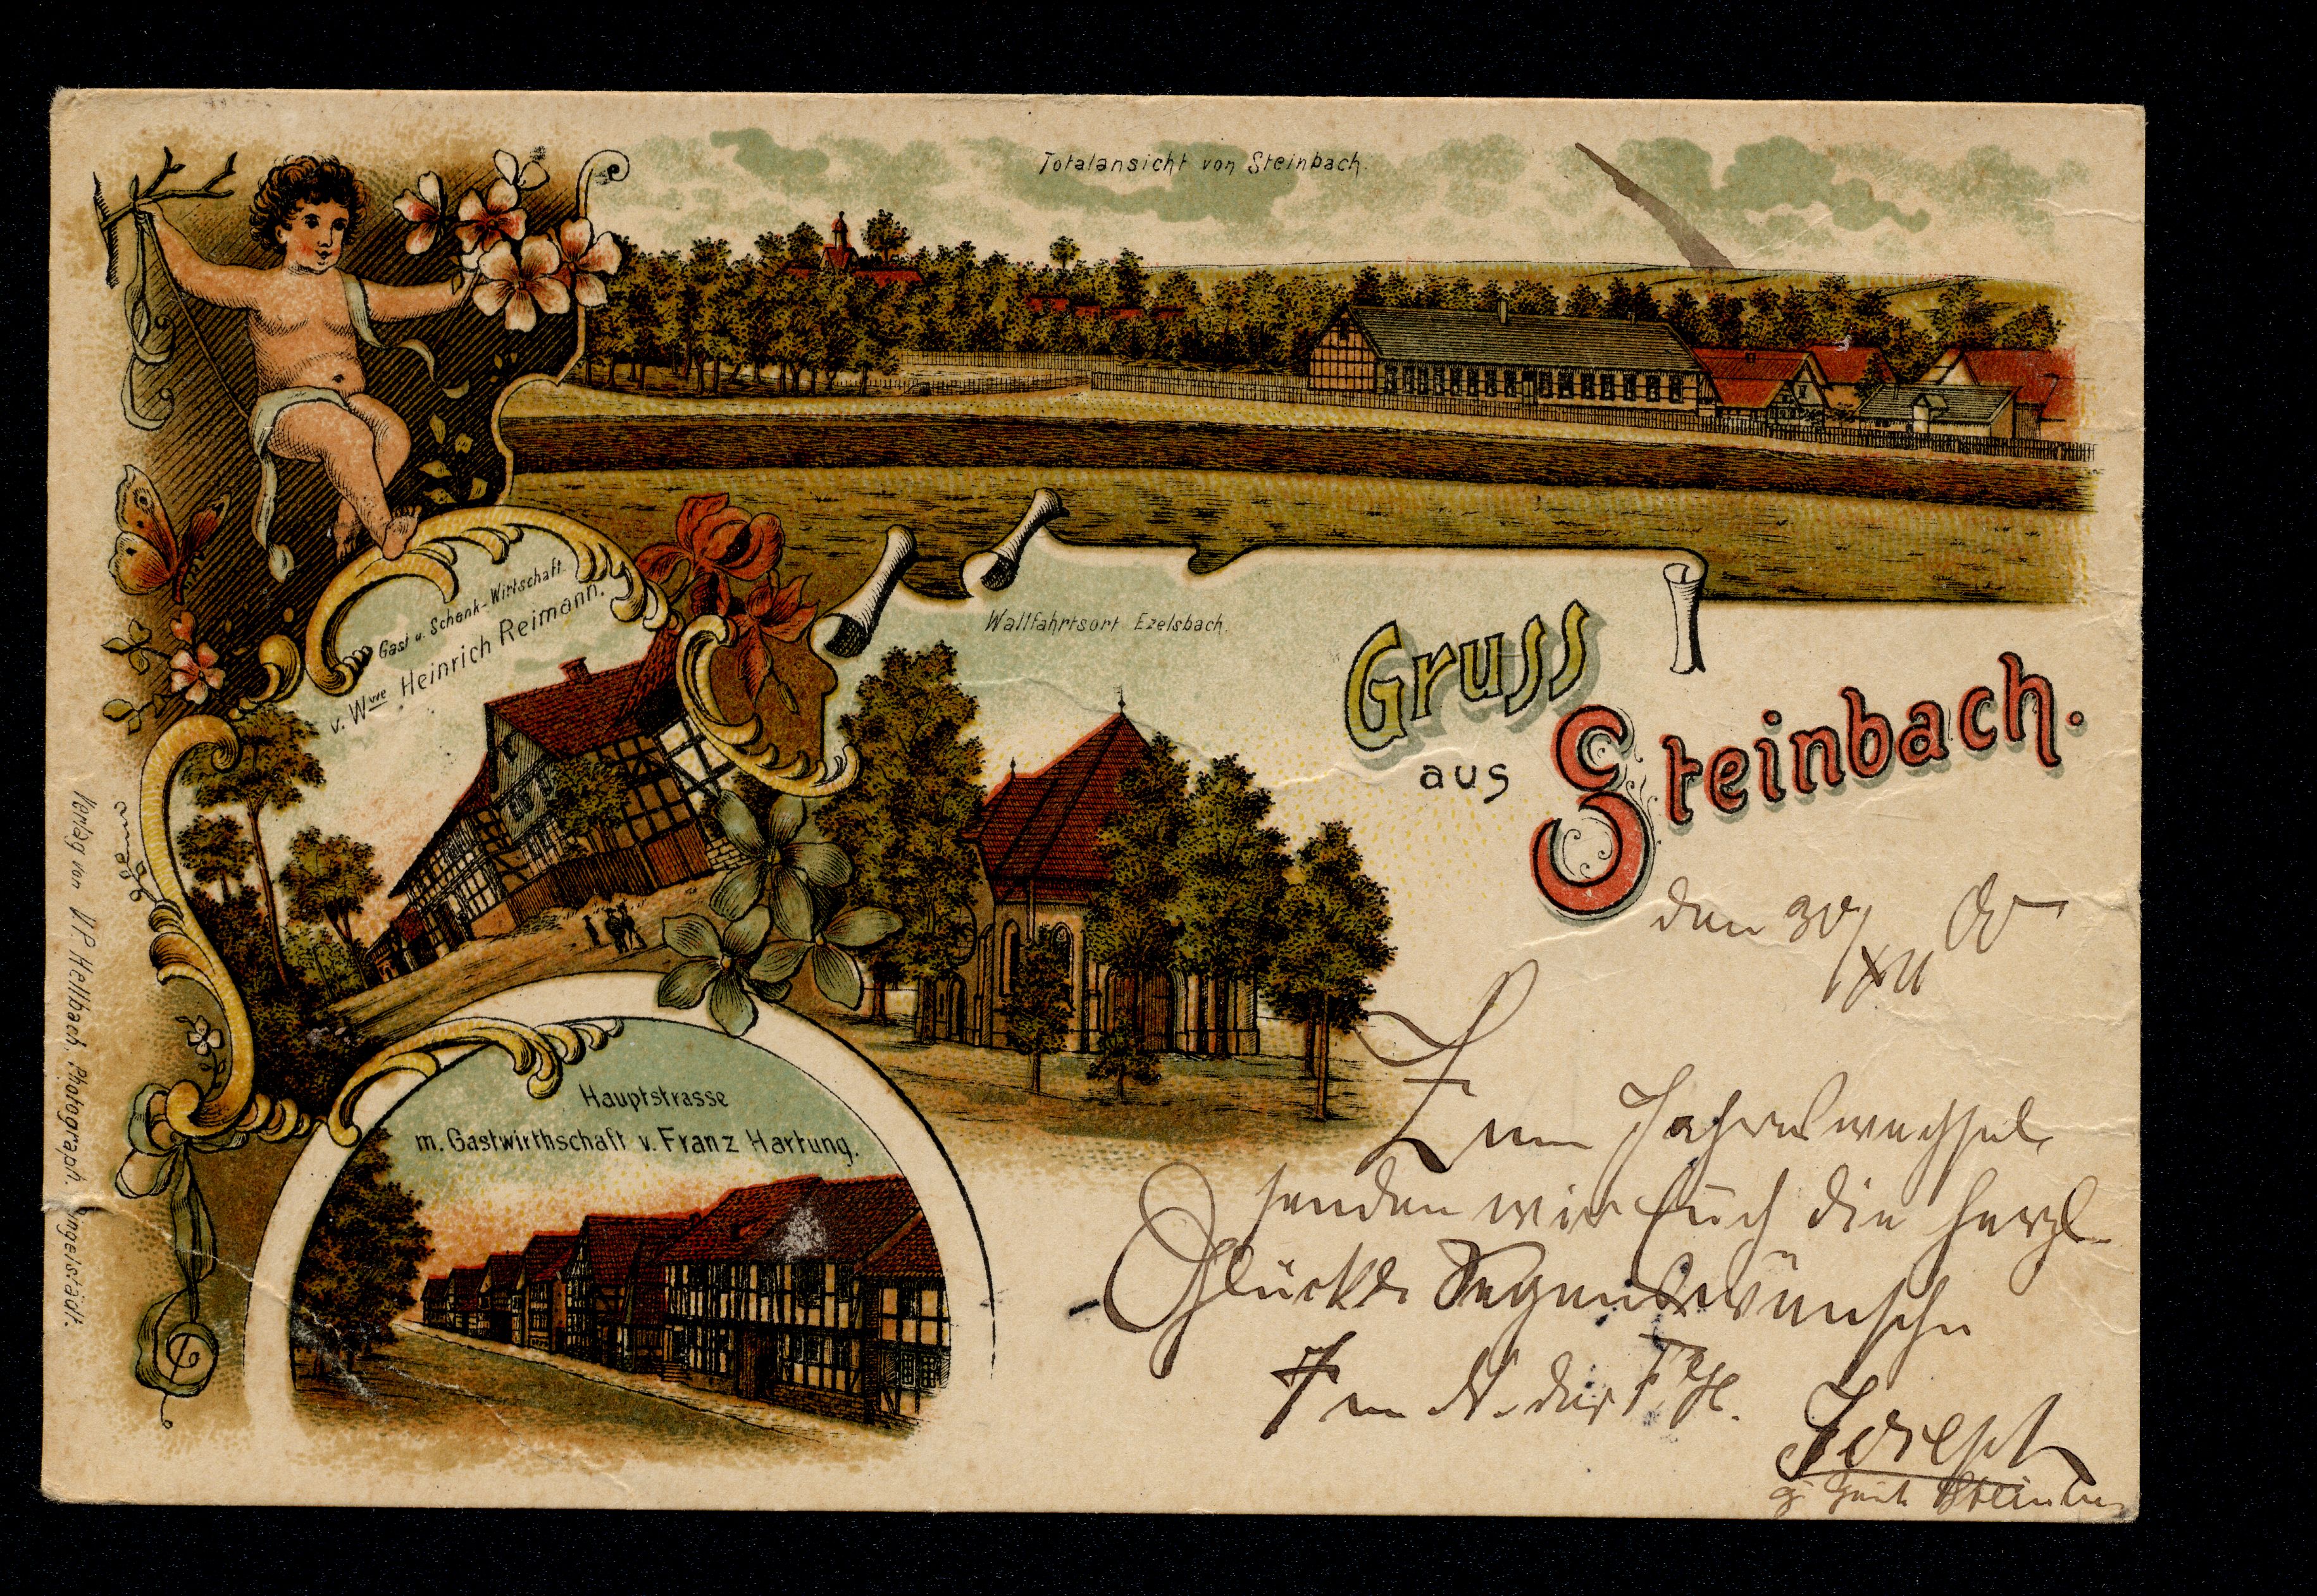 Totalansicht von Steinbach.
Gast u. Schenk-Wirtschaft.
v. Wwe Heinrich Reimann.
Wallfahrtsort Ezelsbach.
Gruss
aus Steinbach.
den 30/XII 00
Zum Jahreswechsel
senden wir Euch die herzl.
Glück & Segenswünsche
Im N. der
Joseph
Hauptstrasse
m. Gastwirthschaft v. Franz Hartung.
Verlag von V. P. Hellbach, Photograph. ingelstädt.